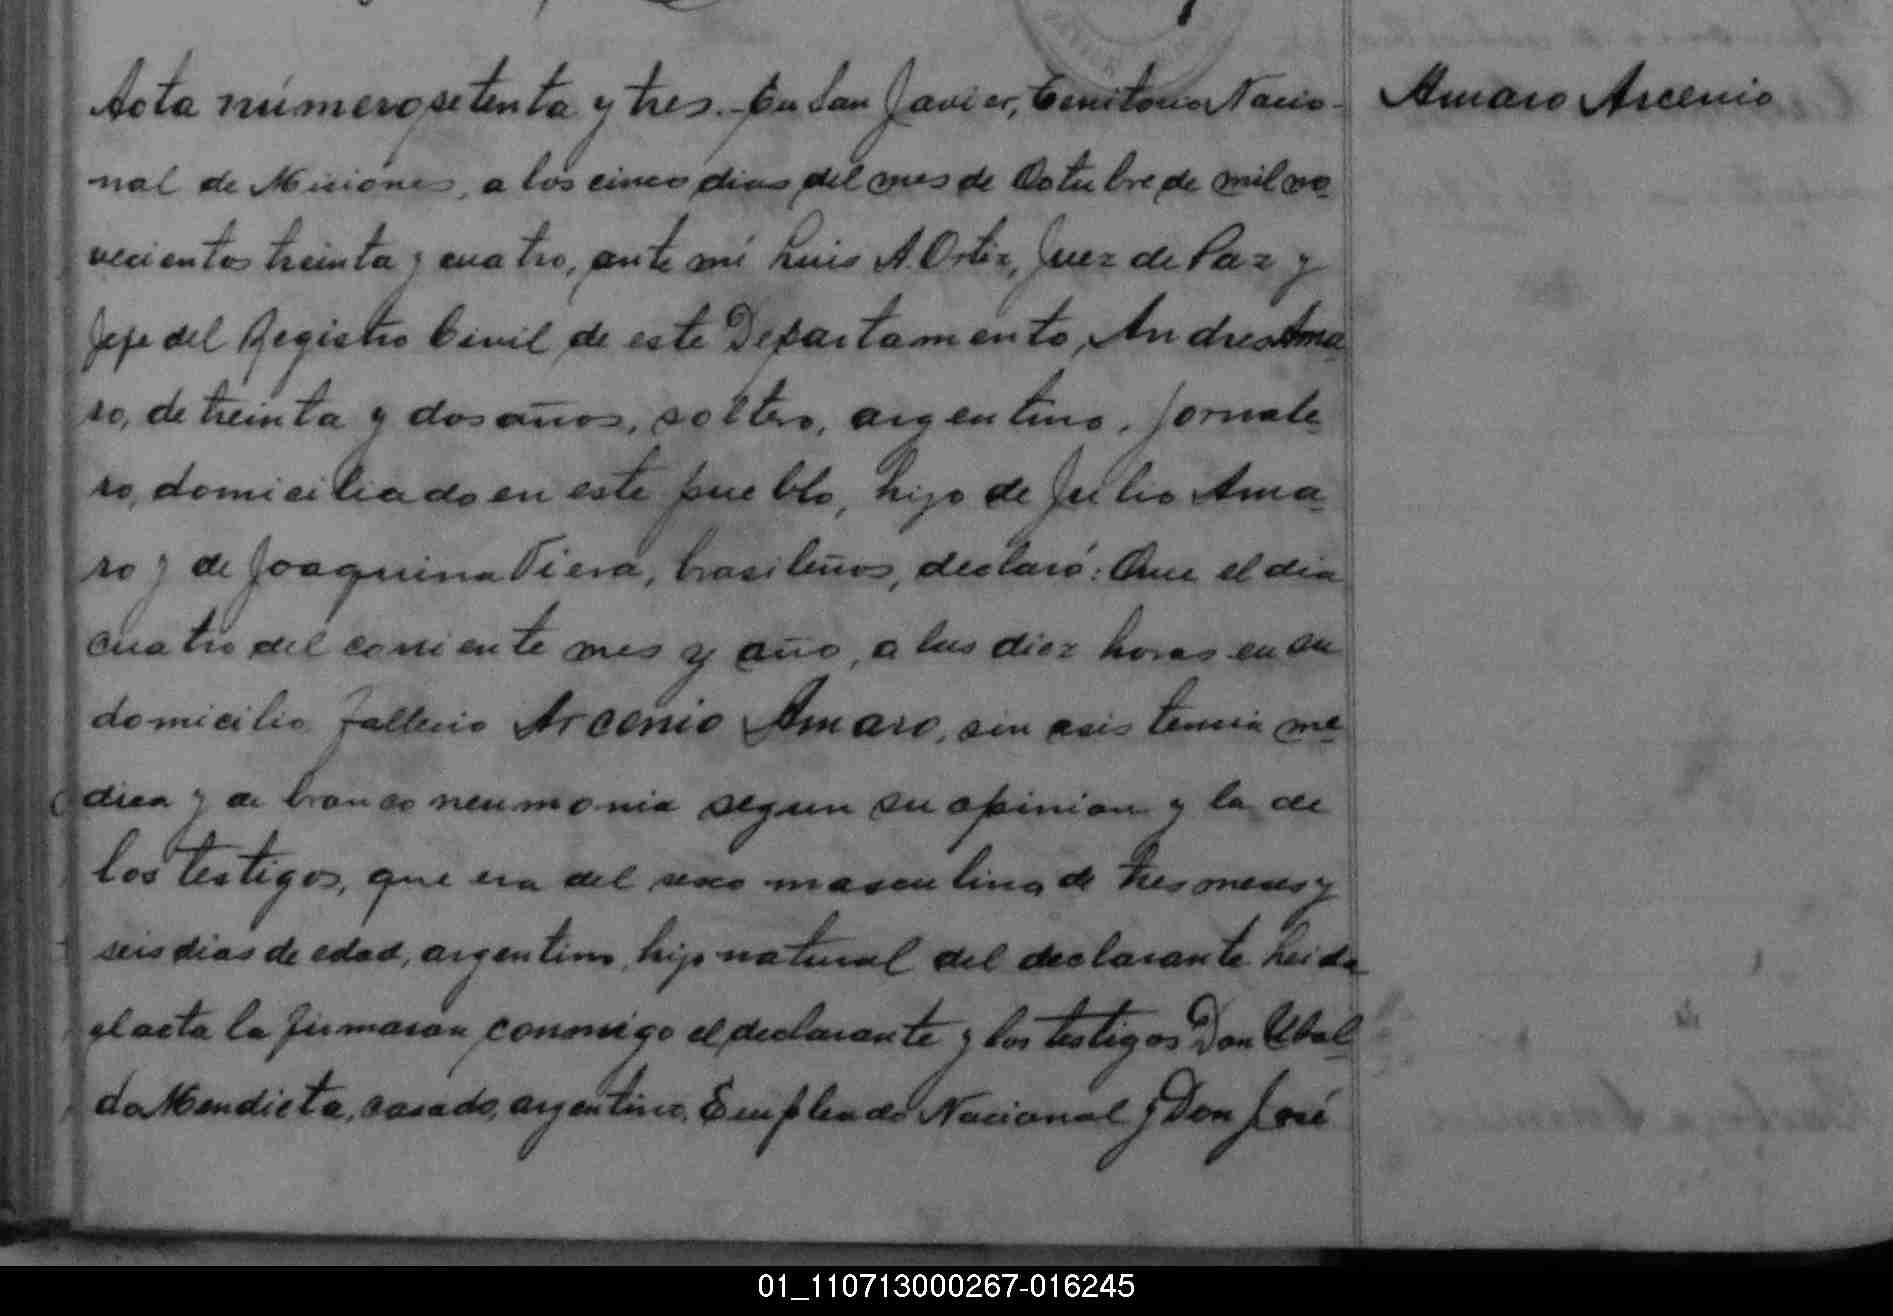 Acta número setenta y tres. En San Javier, Territorio Nacio-
nal de Misiones, a los cinco dias del mes de Octubre de mil no-
vecientos treinta y cuatro, ante mi Luis A. Ortiz, Juez de Paz y
Jefe del Registro Civil de este Departamento, Andres Ama-
ro, de treinta y dos años, soltero, argentino, jornale-
ro, domiciliado en este pueblo, hijo de Julio Ama-
ro y de Joaquina Viera, brasileños, declaró: Que el dia
cuatro del corriente mes y año, a las diez horas en su
domicilio fallecio Arcenio Amaro, sin asistencia me-
dica y de bronco neumonia segun su opinion y la de
los testigos, que era del sexo masculino, de tres meses y
seis dias de edad, argentino, hijo natural del declarante. Leida
el acta la firmaron conmigo el declarante y los testigos Don Ubal-
do Mendieta, casado, argentino, Empleado Nacional y Don José
Amaro Arcenio
01_110713000267-016245